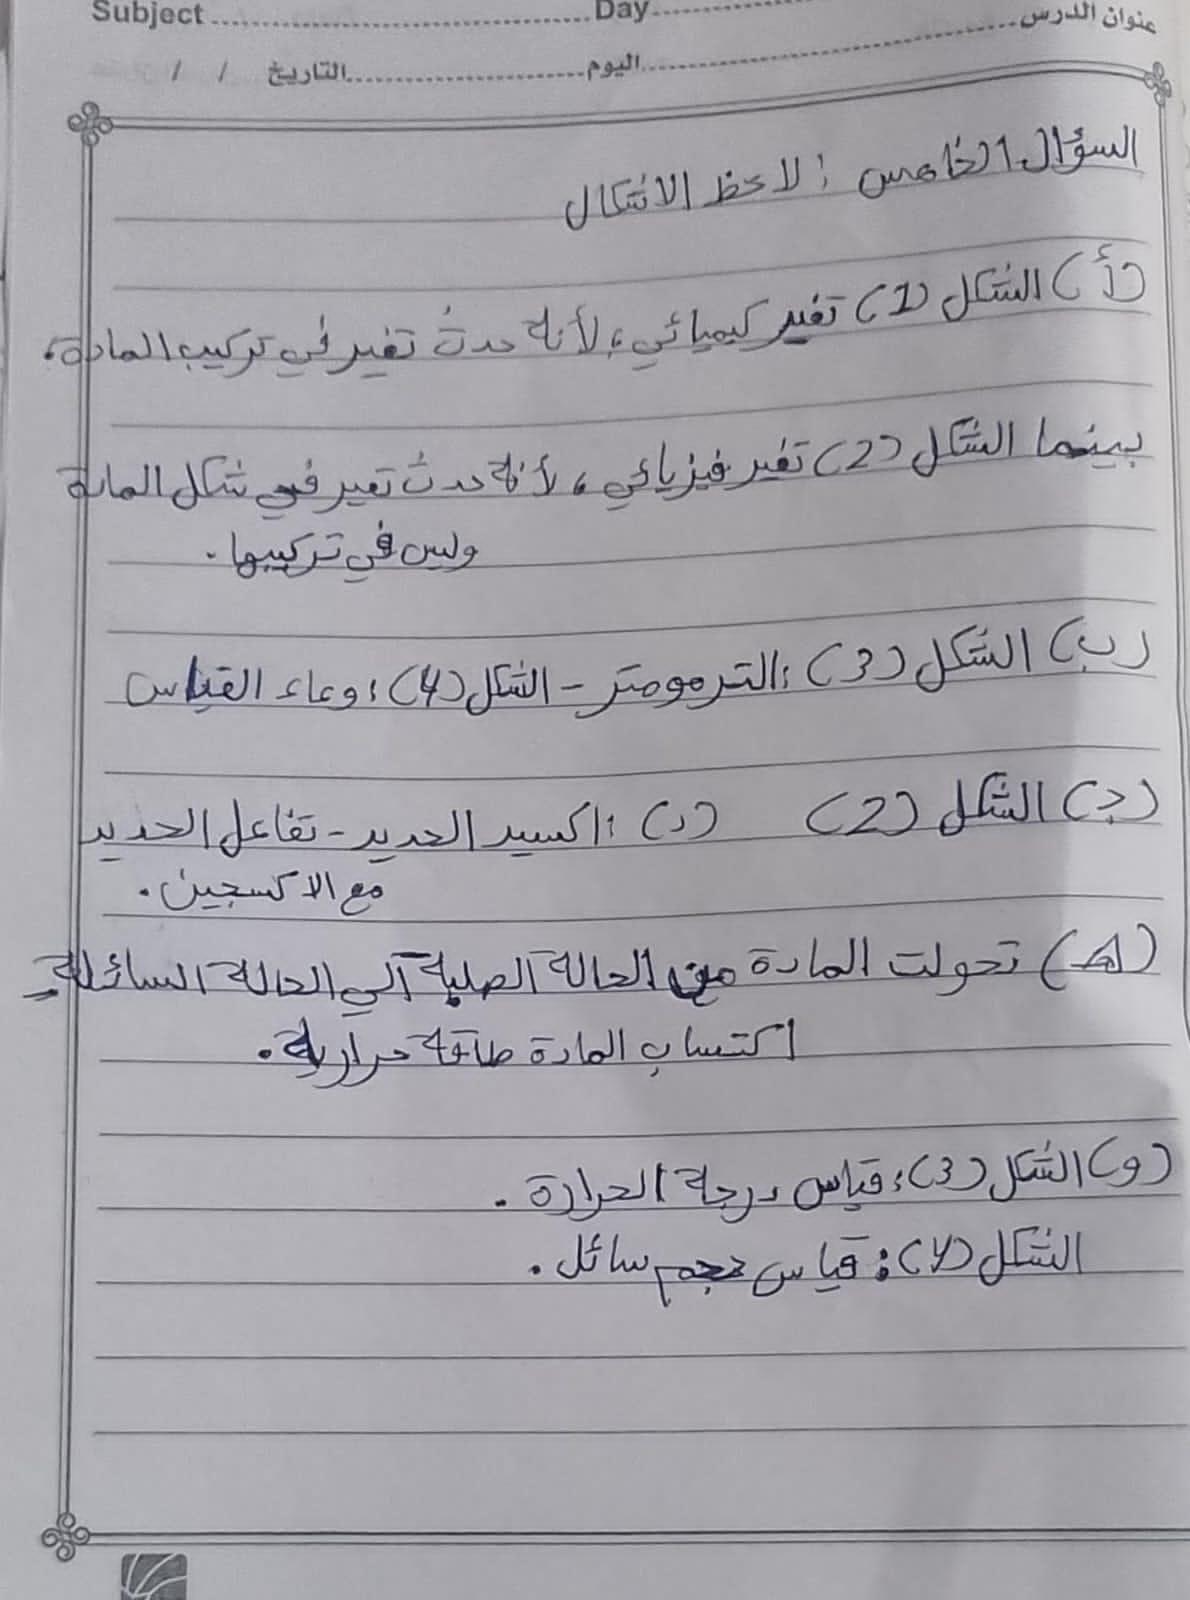 Subject ........ Day ........ عنوان الدرس
اليوم ........ التاريخ / /
السؤال الخامس : لاحظ الاشكال
(أ) الشكل (1) تغير كيميائي، لأنه حدث تغير في تركيب المادة،
بينما الشكل (2) تغير فيزيائي، لأنه حدث تغير في شكل المادة
وليس في تركيبها.
(ب) الشكل (3) : الترمومتر - الشكل (4) : وعاء القياس
(ج) الشكل (2) (د) : اكسيد الحديد - تفاعل الحديد
مع الاكسجين.
(هـ) تحولت المادة من الحالة الصلبة الي الحالة السائلة
اكتساب المادة طاقة حرارية.
(و) الشكل (3) : قياس درجة الحرارة.
الشكل (4) : قياس حجم سائل.